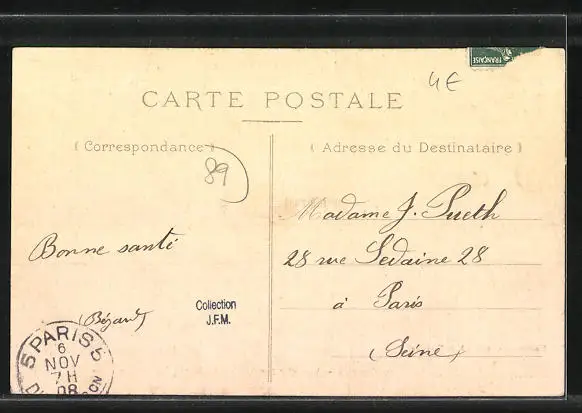 FRANÇAISE
4€
CARTE POSTALE
(Correspondance)
(Adresse du Destinataire)
89
Madame J. Pueth
Bonne santé
28 rue Sedaine 28
à Paris
(Bézard)
Collection
J.F.M.
(Seine)
5 PARIS 5
6
NOV
7H
08